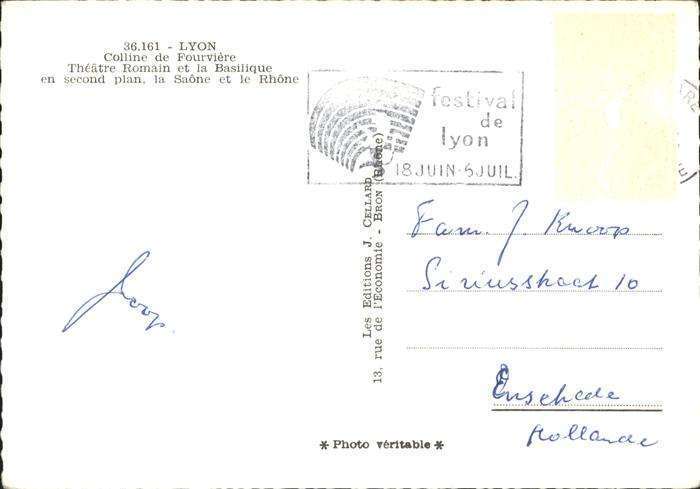 36.161 - LYON
Colline de Fourvière
Théâtre Romain et la Basilique
en second plan, la Saône et le Rhône
festival
de
lyon
18 JUIN-5 JUIL.
Les Editions J. CELLARD
13, rue de l'Economie - BRON (Rhône)
Fam. J. Knoop
Siriusstraat 10
Enschede
Hollande
Knoop.
* Photo véritable *